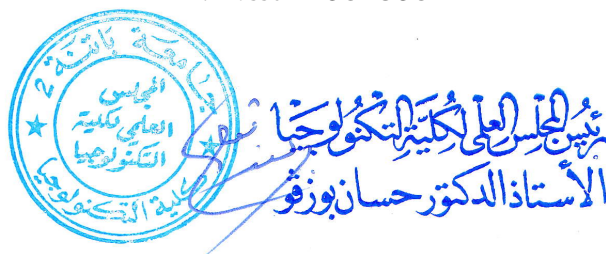 جامعة باتنة 2
المجلس
العلمي لكلية
التكنولوجيا
كلية التكنولوجيا
رئيس المجلس العلمي لكلية التكنولوجيا
الأستاذ الدكتور حسان بوزقو